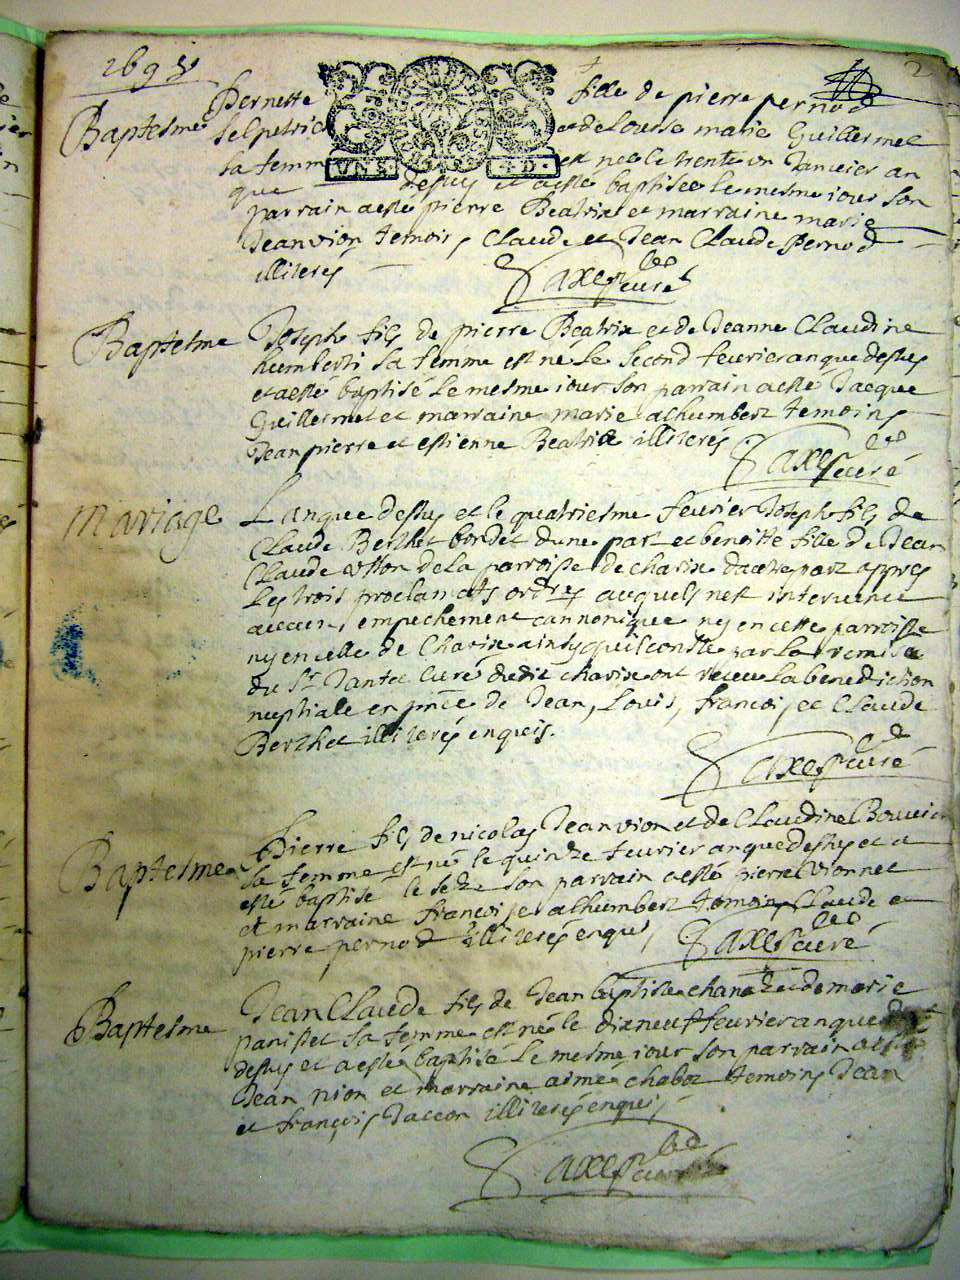 169
2
Baptesme
Pernette fille de pierre pernod
et de Louise marie Guillermet
sa femme est nee le trente un Janvier an
que dessus et a esté baptisée le mesme iour son
parrain a esté pierre Beatrix et marraine marie
Jeanvion temoins Claude et Jean Claude Pernod
illiterés
Saxes curé
Baptesme
Joseph fils de pierre Beatrix et de Jeanne Claudine
humbert sa femme est né le second feurier an que dessus
et a esté baptisé le mesme iour son parrain a esté Jacque
Guillermet et marraine marie humbert temoins
Jean pierre et estienne Beatrix illiterés
Saxes curé
Mariage
L an que dessus et le quatriesme feurier Joseph fils de
Claude Berthet d une part et benoitte fille de Jean
Claude de la paroisse de charix d autre part appres
les trois proclamats ordres auquels n est interuenu
aucun empechement cannonique ny en cette parroisse
ny en celle de Charix ainsy qu il conste par la remise
du Sr curé dudit charix ont receu la benediction
nuptiale en pnce de Jean, Louis, francois, et Claude
Berthet illiterés enquis.
Saxes curé
Baptesme
Pierre fils de nicolas Jeanvion et de Claudine Bouvier
sa femme est né le quinze feurier an que dessus et a
esté baptisé le seze son parrain a esté pierre vionnet
et marraine francoise humbert temoins Claude et
pierre pernod illiterés enquis
Saxes curé
Baptesme
Jean Claude fils de Jean baptiste et de marie
panisset sa femme est né le dixneuf feurier an que
dessus et a esté baptisé le mesme iour son parrain
Jean nion et marraine aimé chaboz temoins Jean
et françois Jaccon illiterés enquis
Saxes curé